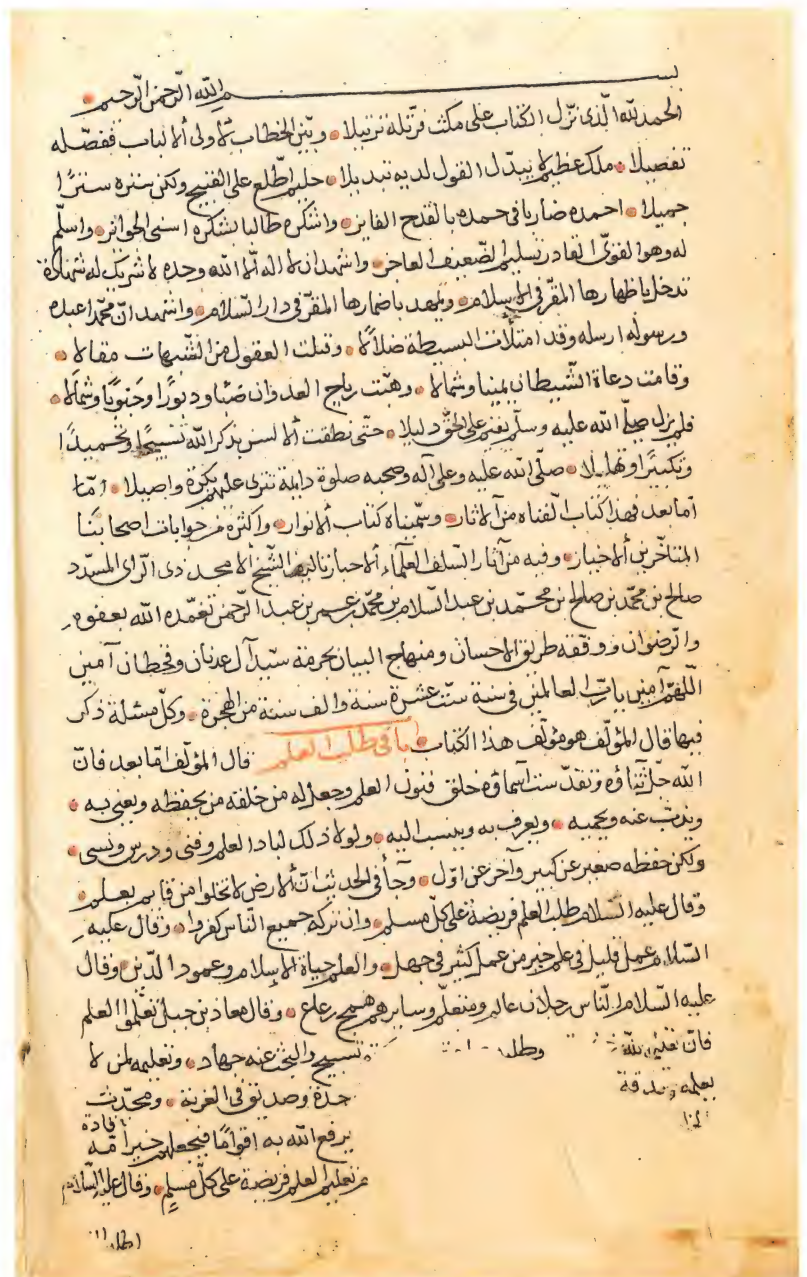 بسم الله الرحمن الرحيم
الحمد لله الذي نزل الكتاب على مكث فرتله ترتيلا وبين الخطاب لأولي الالباب ففصله
تفصيلا ملك عظيم لا يبدل القول لديه تبديلا حليم اطلع على القبيح ولكن ستره سترا
جميلا احمده ضاربا في حمده بالقدح الفايز واشكره طالبا بشكره اسنى الجوائز واسلم
له وهو القوي القادر تسليم الضعيف العاجز واشهد ان لا اله الا الله وحده لا شريك له شهادة
تدخل باظهارها المقر في الإسلام وتمهد باضمارها المقر في دار السلام واشهد ان محمدا عبده
ورسوله ارسله وقد امتلأت البسيطة ضلالا وقبلت العقول من الشبهات مقالا
وقامت دعاة الشيطان يمينا وشمالا وهبت رياح العدوان صبا ودبورا وجنوبا وشمالا
فلم يزل صلى الله عليه وسلم يقيم على الحق دليلا حتى نطقت الالسن بذكر الله تسبيحا وتحميدا
وتكبيرا وتهليلا صلى الله عليه وعلى آله وصحبه صلوة دايمة تترى عليهم بكرة واصيلا امّا
اما بعد فهذا كتاب الفناه من الآثار وسميناه كتاب الانوار واكثره من جوابات اصحابنا
المتاخرين الاخيار وفيه من آثار السلف العلمآء الاحبار تاليف الشيخ الامجد ذي الراي المسدد
صالح بن محمد بن صالح بن محمد بن عبد السلام بن محمد بن عمر بن عبد الرحمن تغمده الله بعفوه
والرضوان ووقفه طريق الاحسان ومنهاج البيان بحرمة سيد آل عدنان وقحطان آمين
اللهم آمين يا رب العالمين في سنة ست عشرة سنة والف سنة من الهجرة وكل مسئلة ذكر
فيها قال المؤلف هو مؤلف هذا الكتاب باب في طلب العلم قال المؤلف اما بعد فان
الله جل ثناؤه وتقدست اسماؤه خلق فنون العلم وجعل له من خلقه من يحفظه ويعنى به
ويذب عنه ويحميه ويعرف به وينسب اليه ولولا ذلك لباد العلم وفنى ودرس ونسي
ولكن حفظه صغير عن كبير وآخر عن اول وجآ في الحديث ان الارض لا تخلوا من قايم بعلم
وقال عليه السلام طلب العلم فريضة على كل مسلم وان تركه جميع الناس كفروا وقال عليه
السلام عمل قليل في علم خير من عمل كثير في جهل والعلم حياة الإسلام وعمود الدين وقال
عليه السلام الناس رجلان عالم ومتعلم وسايرهم همج رعاع وقال معاذ بن جبل تعلموا العلم
فان تعليمه لله وطلبه تسبيح والبحث عنه جهاد وتعليمه لمن لا
يعلمه صدقة حدة وصديق في الغربة ومحدث
يرفع الله به اقواما فيجعلهم خيرا قادة
من تعليم العلم فريضة على كل مسلم وقال عليه السلام
اطلبوا